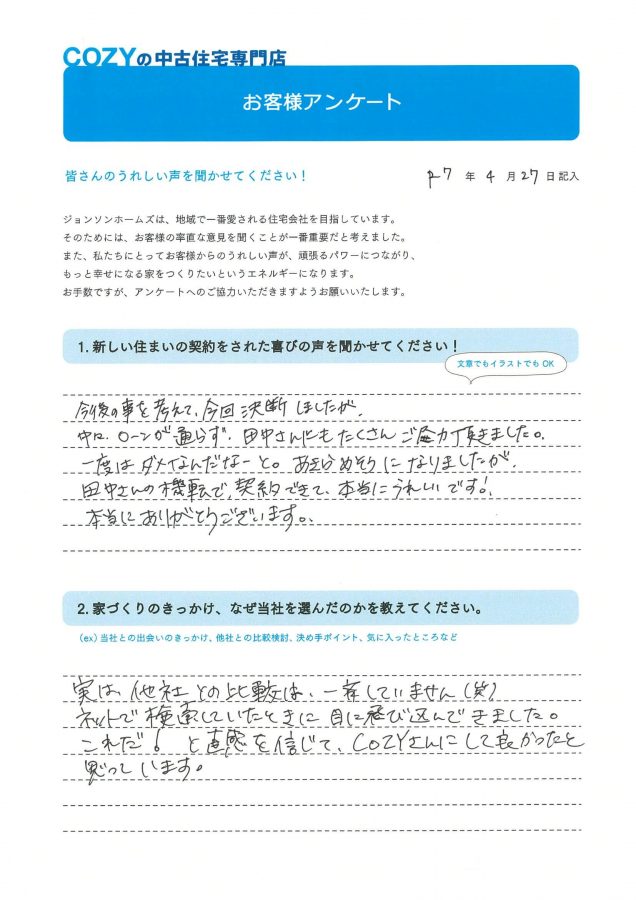 COZYの中古住宅専門店
お客様アンケート
皆さんのうれしい声を聞かせてください！
R7 年 4 月 27 日記入
ジョンソンホームズは、地域で一番愛される住宅会社を目指しています。
そのためには、お客様の率直な意見を聞くことが一番重要だと考えました。
また、私たちにとってお客様からのうれしい声が、頑張るパワーにつながり、
もっと幸せになる家をつくりたいというエネルギーになります。
お手数ですが、アンケートへのご協力いただきますようお願いいたします。
1. 新しい住まいの契約をされた喜びの声を聞かせてください！
文章でもイラストでも OK
今後の事を考えて、今回決断しましたが、
中々、ローンが通らず、田中さんにもたくさんご尽力頂きました。
一度はダメなんだなーと。あきらめそうになりましたが、
田中さんの機転で、契約できて、本当にうれしいです！
本当にありがとうございます。
2. 家づくりのきっかけ、なぜ当社を選んだのかを教えてください。
（ex）当社との出会いのきっかけ、他社との比較検討、決め手ポイント、気に入ったところなど
実は、他社との比較は、一番していません（笑）
ネットで検索していたときに目に飛び込んできました。
これだ！と直感を信じて、COZYさんにして良かったと
思っています。